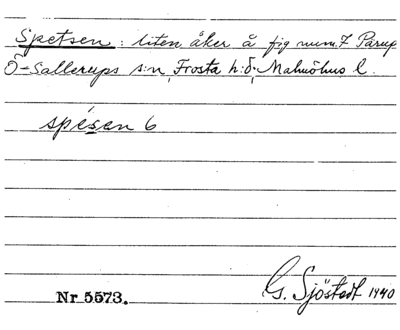 Spetsen : liten åker å fig num. 7 Pärup
Ö-Sallerups s:n, Frosta h:d, Malmöhus l.
spésen 6
G. Sjöstedt 1940
Nr 5573.